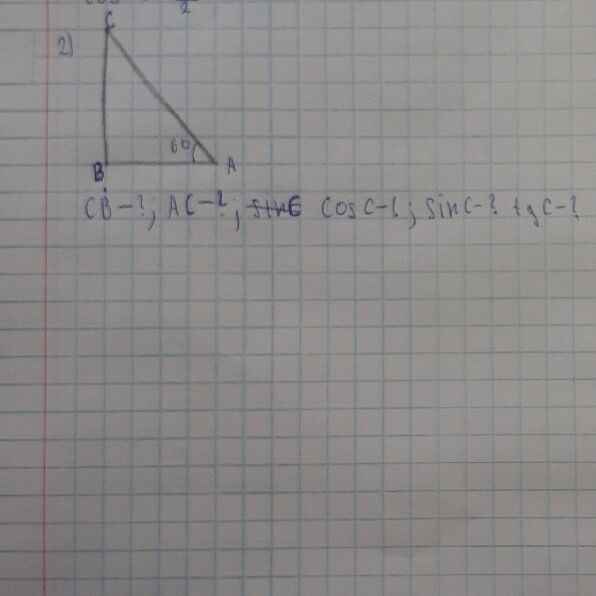 2
2)
C
60
B
A
CB-?; AC-?; cosC-?; sinC-? tgC-?